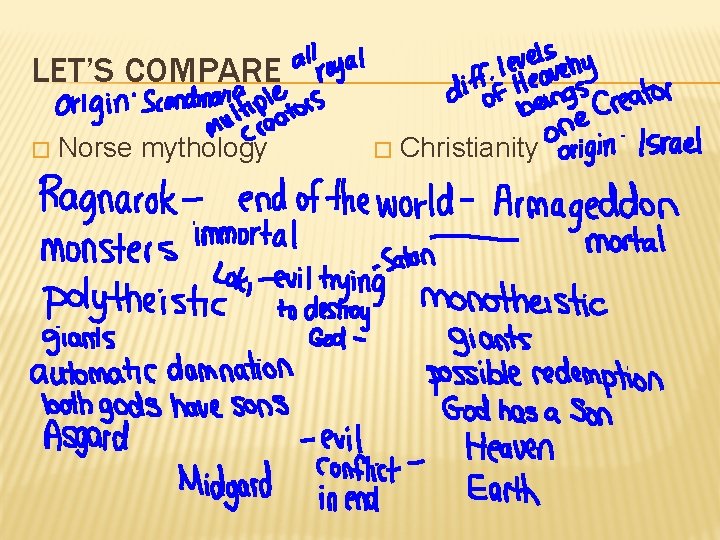 LET'S COMPARE
all royal
diff. levels of Heavenly beings
origin: Scandinavia
multiple creators
one Creator
Norse mythology
Christianity
origin: Israel
Ragnarok - end of the world - Armageddon
monsters immortal mortal
Loki - evil trying to destroy God - Satan
polytheistic monotheistic
giants giants
automatic damnation possible redemption
both gods have sons God has a Son
Asgard Heaven
- evil conflict in end -
Midgard Earth